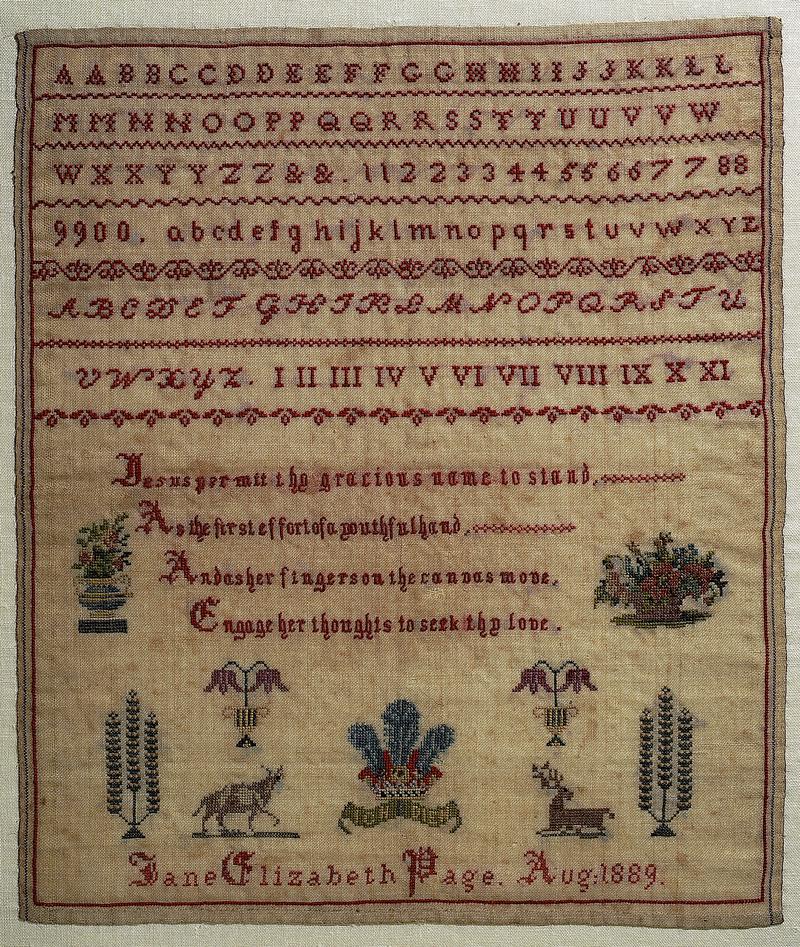 A A B B C C D D E E F F G G H H I I J J K K L L
M M N N O O P P Q Q R R S S T T U U V V W
W X X Y Y Z Z & & . 1 1 2 2 3 3 4 4 5 5 6 6 7 7 8 8
9 9 0 0 . a b c d e f g h i j k l m n o p q r s t u v w x y z
A B C D E F G H I K L M N O P Q R S T U
V W X Y Z . I II III IV V VI VII VIII IX X XI
Jesus permit thy gracious name to stand,
As the first effort of a youthful hand,
And as her fingers on the canvas move,
Engage her thoughts to seek thy love.
Jane Elizabeth Page. Aug: 1889.